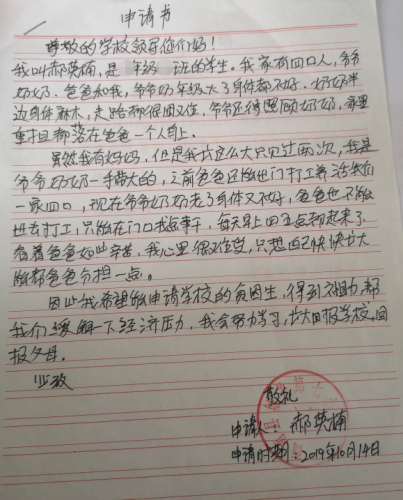 申请书
尊敬的学校领导你们好！
我叫郝英楠，是 年级 班的学生。我家有四口人，爷爷
奶奶、爸爸和我，爷爷奶奶年级大了身体都不好，奶奶半
边身体麻木，走路都很困难，爷爷还得照顾奶奶，家里
重担都落在爸爸一个人身上。
虽然我有妈妈，但是我长这么大只见过两次，我是
爷爷奶奶一手带大的，之前爸爸还能出门打工养活我们
一家四口，现在爷爷奶奶老了身体又不好，爸爸也不能
出去打工，只能在门口找点事干，每天早上四五点就起来了，
看着爸爸如此辛苦，我心里很难受，只想自己快快长大
能帮爸爸分担一点。
因此我希望能申请学校的贫困生，得到补助力，帮
我们缓解一下经济压力，我会努力学习，长大回报学校，回
报父母。
此致
敬礼
申请人：郝英楠
申请时期：2019年10月14日